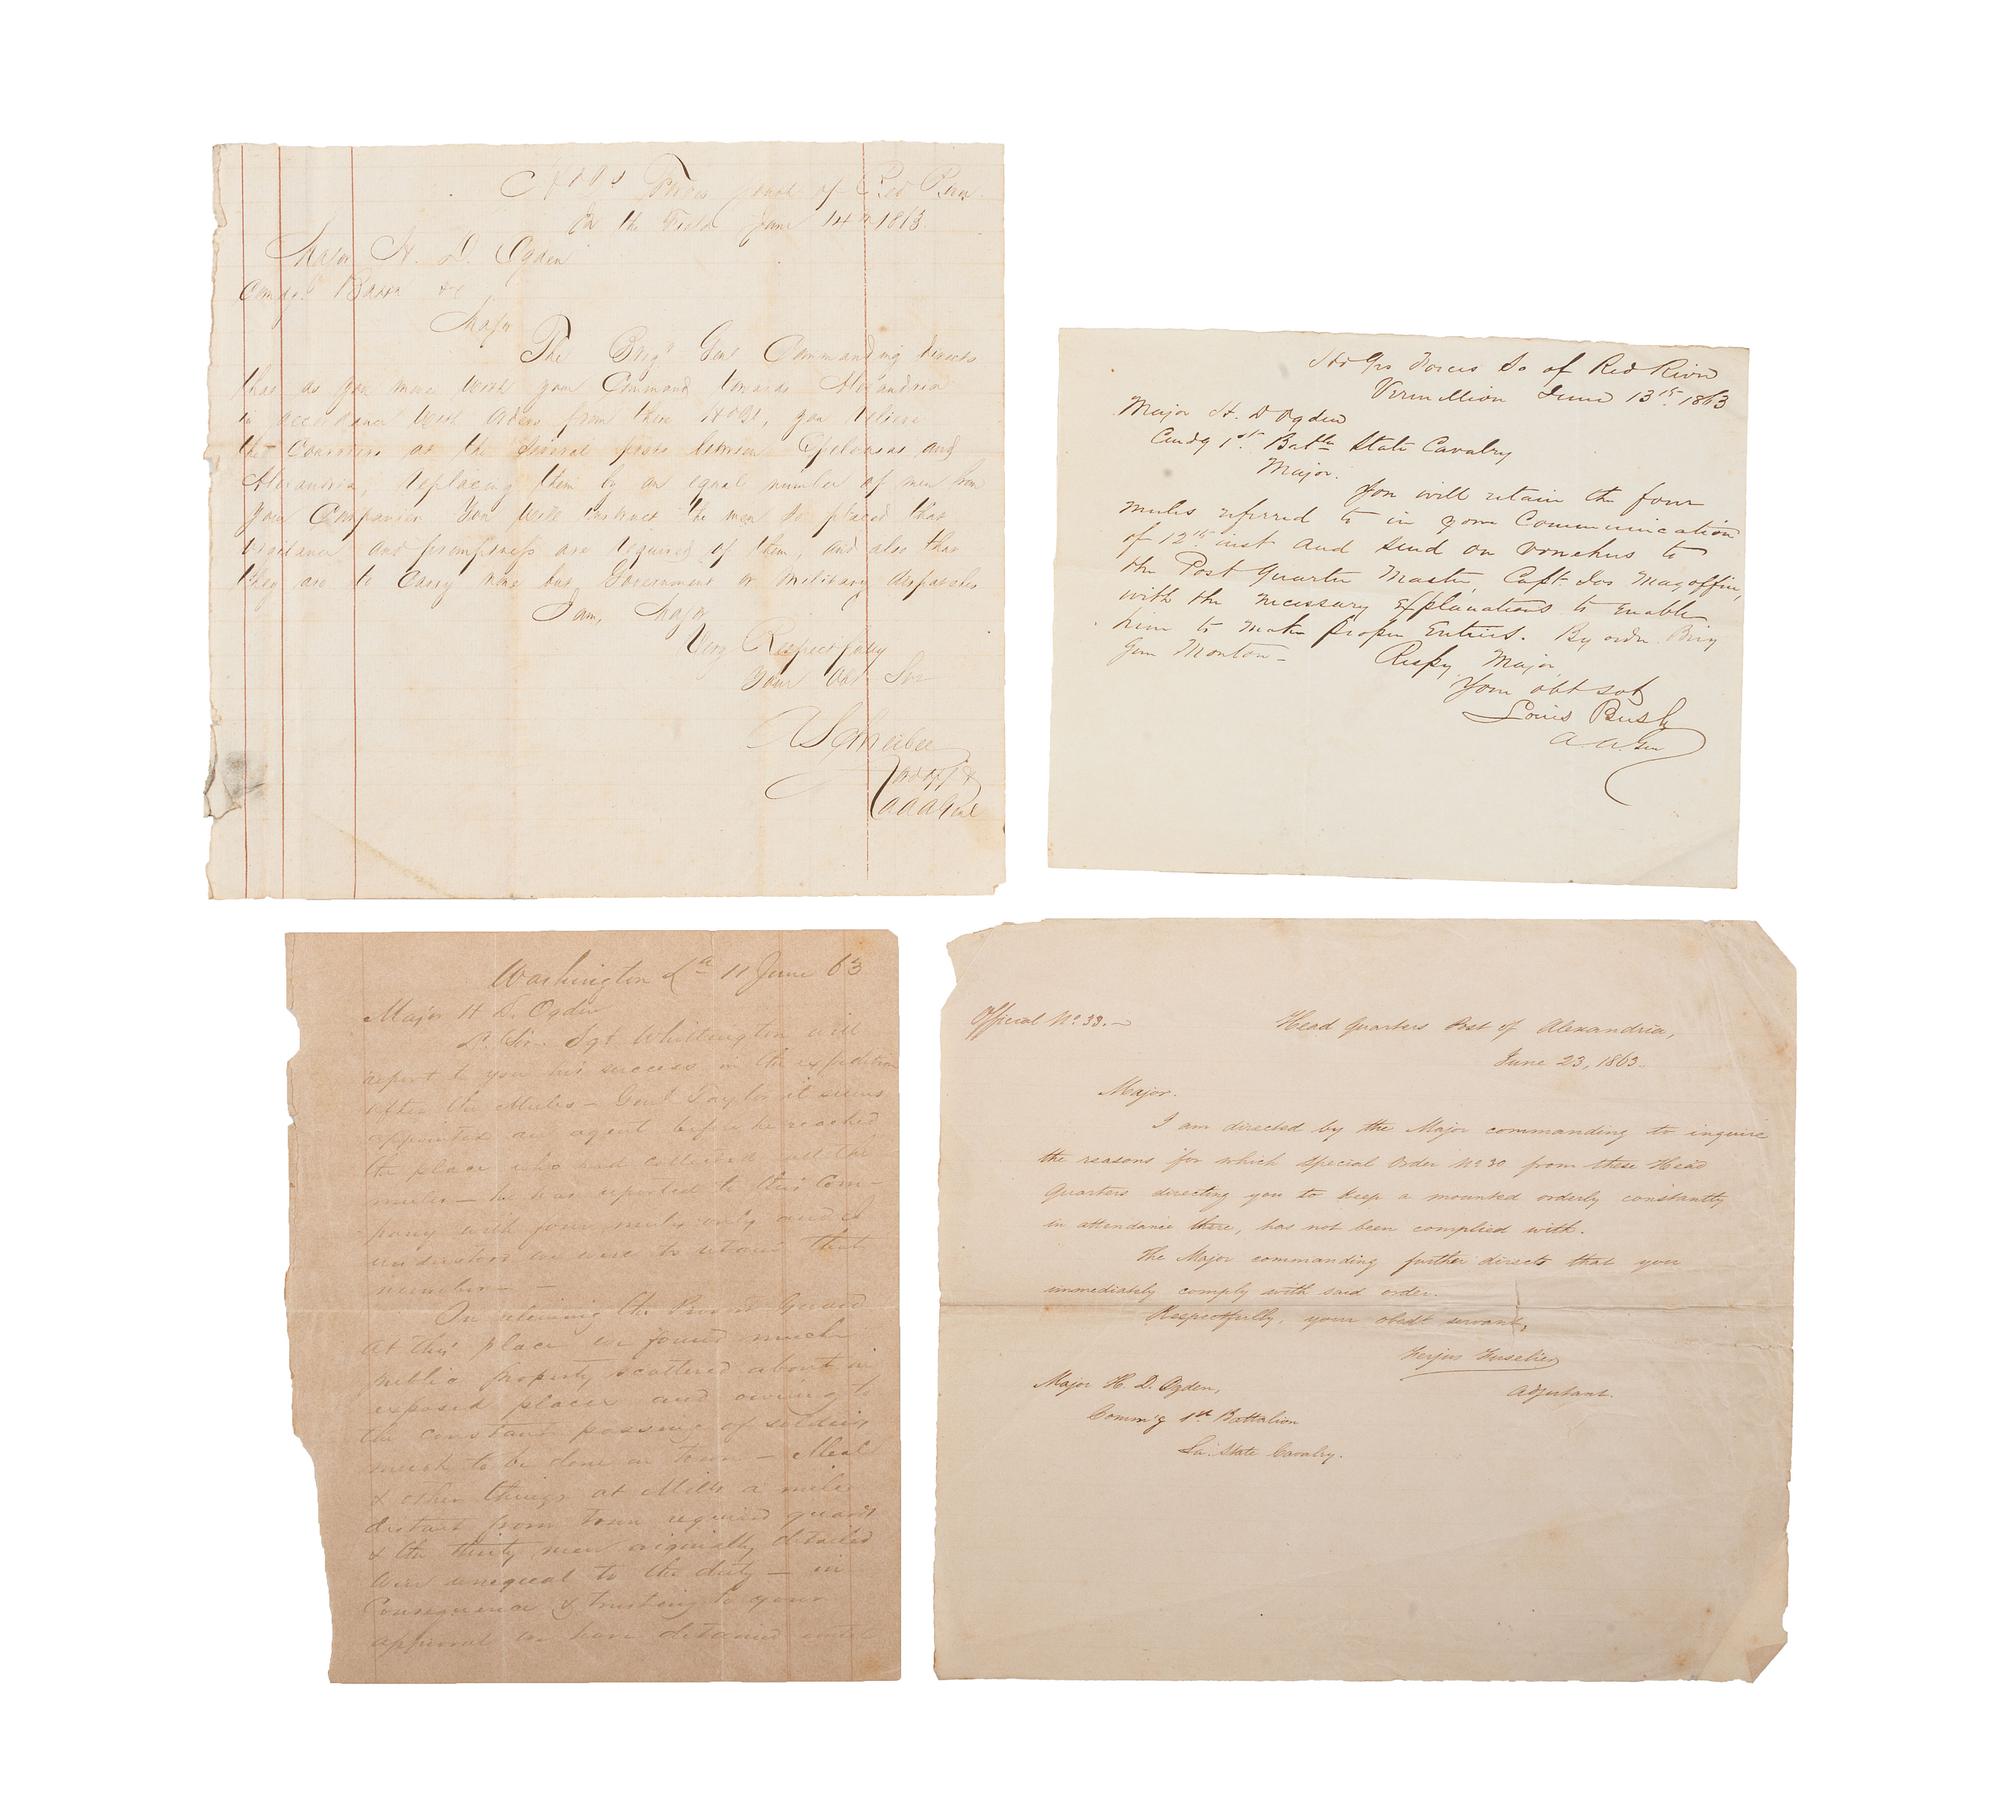 Hd Qrs Forces South of Red River
In the Field June 14th 1863.
Major H. D. Ogden
Comdg Battn &c
Major
The Brigr Genl Commanding directs
that as you move with your Command towards Alexandria
in accordance with orders from these Hd Qrs, you relieve
the Couriers at the several posts between Opelousas and
Alexandria, replacing them by an equal number of men from
your Companies. You will instruct the men so placed that
vigilance and promptness are required of them, and also that
they are to carry none but Government or Military dispatches
I am, Major
Very Respectfully
Your Obt Svt
A Schreiber
A A A Genl
Hd Qrs Forces So of Red River
Vermillion June 13th 1863
Major H. D Ogden
Comdg 1st Battn State Cavalry
Major.
You will retain the four
mules referred to in your Communication
of 12th inst and send on vouchers to
the Post Quarter Master, Capt. Jos Magoffin,
with the necessary explanations to enable
him to make proper Entries. By order Brig
Gen Mouton-
Respy Major
Your obt svt
Louis Bush
A. A. Gen
Washington La 11 June 63
Major H D. Ogden
Dr Sir- Sgt Whittington will
report to you his success in the expedition
after the Mules - Genl Taylor it seems
appointed an agent before he reached
the place who had collected all the
mules - he has reported to this Com-
pany with four mules only and I
understood we were to retain that
number - -
On relieving the Provost Guard
at this place we found much
public property scattered about in
exposed places and owing to
the constant passing of soldiers
much to be done in town - Meal
& other things at Mills a mile
distant from town required guards
& the thirty men originally detailed
were unequal to the duty - in
Consequence & trusting to your
approval we have detained
Official No. 33. -
Head Quarters Post of Alexandria,
June 23, 1863.
Major.
I am directed by the Major commanding to inquire
the reasons for which Special Order No. 30 from these Head
Quarters directing you to keep a mounted orderly constantly
in attendance there, has not been complied with.
The Major commanding further directs that you
immediately comply with said order.
Respectfully, your obedt servant,
Fergus Fuselier
Adjutant.
Major H. D. Ogden,
Comm'g 1st Battalion
La. State Cavalry.